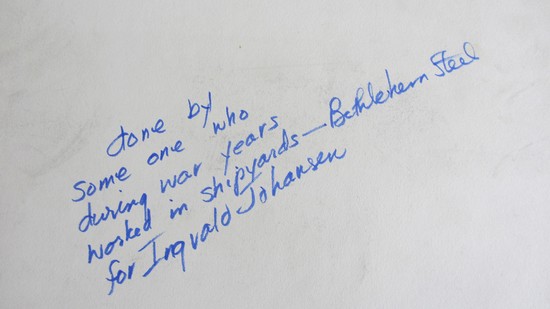 done by
some one who
during war years
worked in shipyards — Bethlehem Steel
for Ingvald Johansen